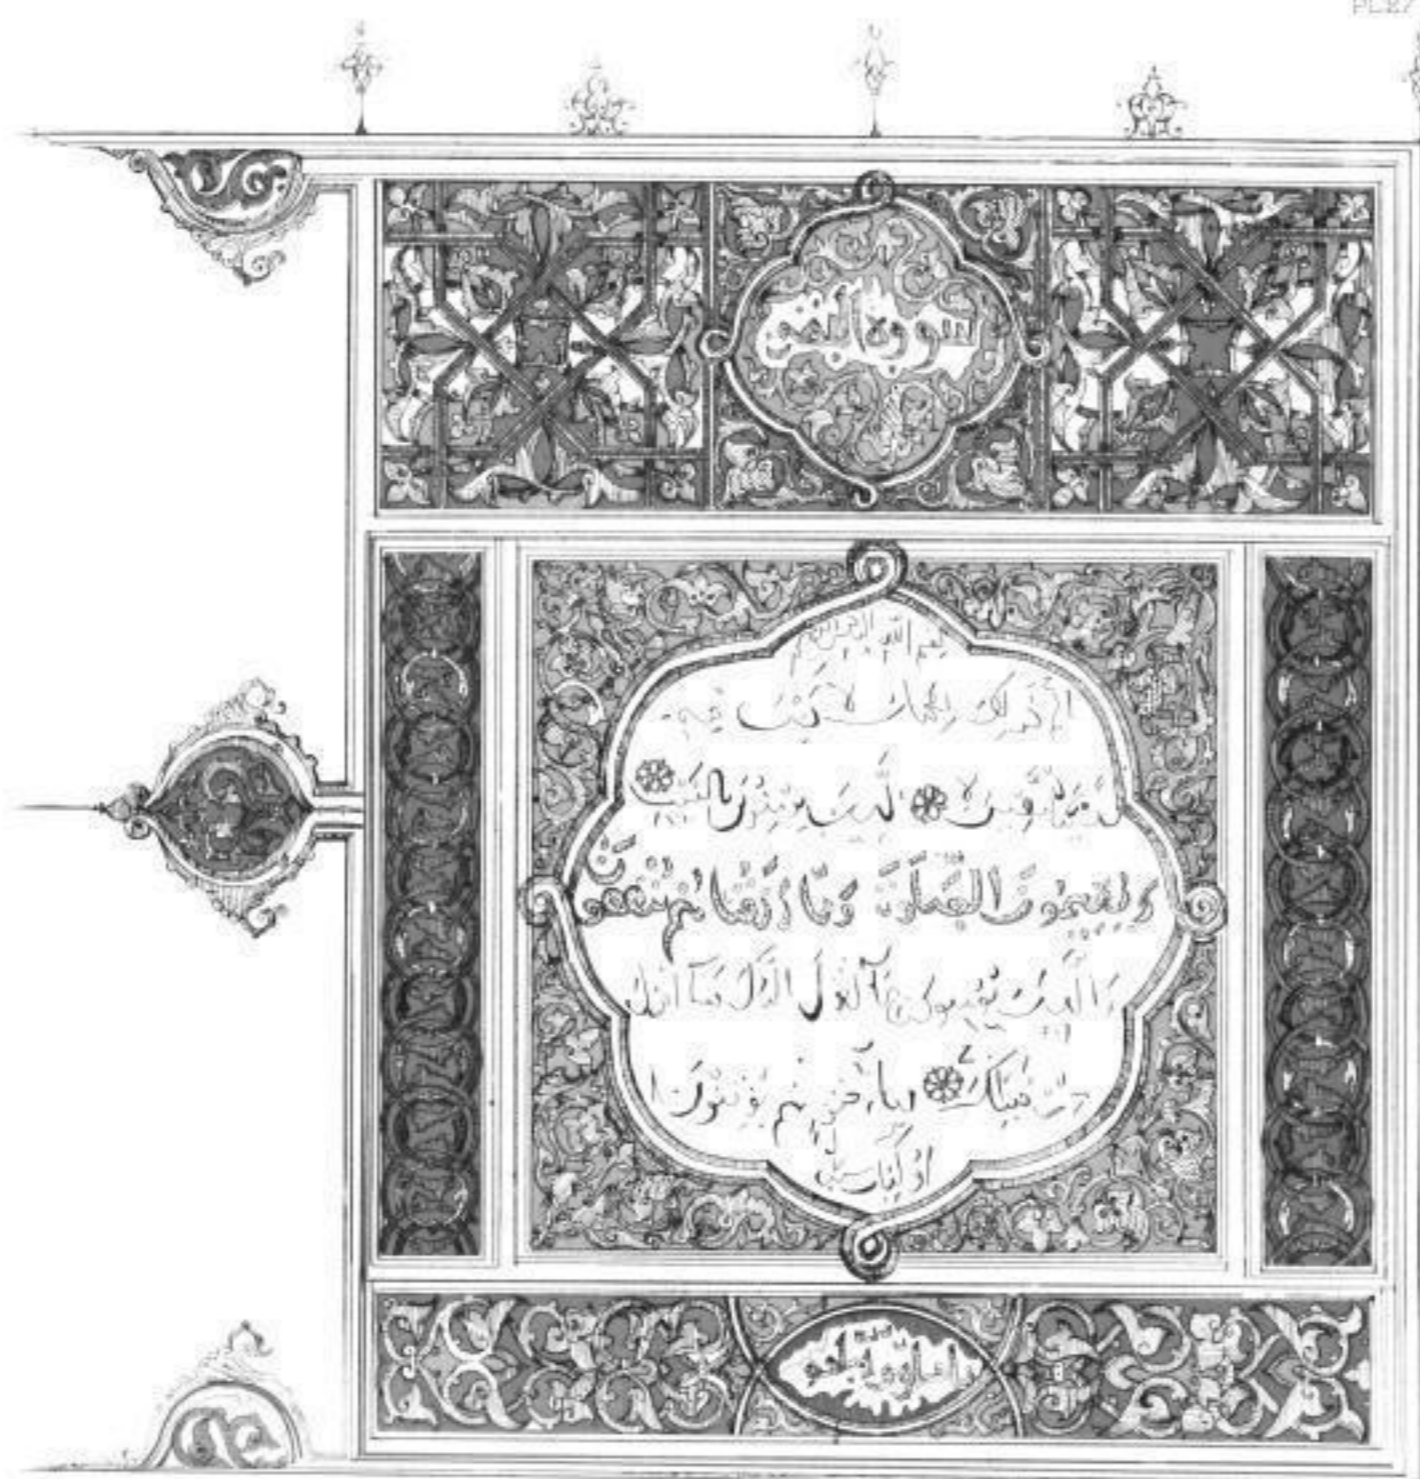 PL 87
سورة البقرة
بسم الله الرحمن الرحيم
الم ذلك الكتاب لا ريب فيه
هدى للمتقين الذين يؤمنون بالغيب
ويقيمون الصلوة ومما رزقنهم ينفقون
والذين يؤمنون بما أنزل إليك وما أنزل
من قبلك وبالآخرة هم يوقنون
أولئك